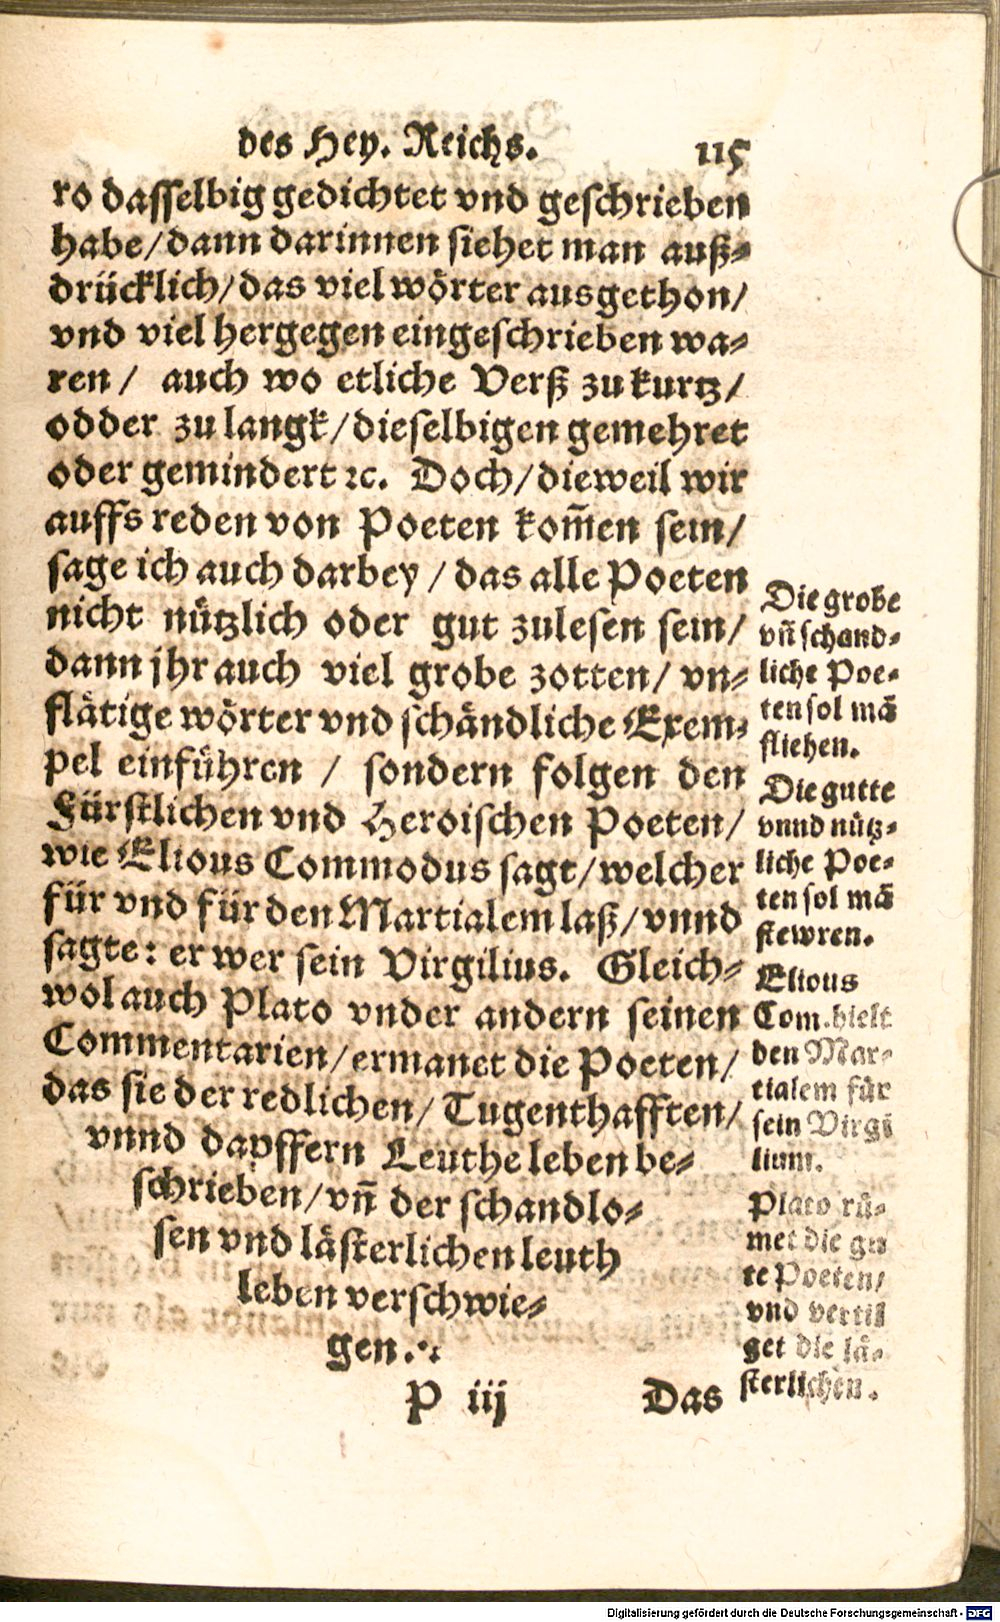 des Hey. Reichs.
115
ro dasselbig gedichtet vnd geschrieben
habe/dann darinnen siehet man auß⸗
drücklich/das viel wörter ausgethon/
vnd viel hergegen eingeschrieben wa⸗
ren/ auch wo etliche Verß zu kurtz/
odder zu langk/dieselbigen gemehret
oder gemindert ꝛc. Doch/dieweil wir
auffs reden von Poeten kom̃en sein/
sage ich auch darbey/das alle Poeten
nicht nützlich oder gut zulesen sein/
dann jhr auch viel grobe zotten/ vn⸗
flätige wörter vnd schändliche Exem⸗
pel einführen / sondern folgen den
Fürstlichen vnd Heroischen Poeten/
wie Elious Commodus sagt/welcher
für vnd für den Martialem laß/vnnd
sagte: er wer sein Virgilius. Gleich⸗
wol auch Plato vnder andern seinen
Commentarien/ermanet die Poeten/
das sie der redlichen/Tugenthafften/
vnnd dapffern Leuthe leben be⸗
schrieben/vñ der schandlo⸗
sen vnd lästerlichen leuth
leben verschwie⸗
gen.
P iij
Das
Die grobe
vñ schand⸗
liche Poe⸗
ten sol mã
fliehen.
Die gutte
vnnd nütz⸗
liche Poe⸗
ten sol mã
stewren.
Elious
Com. hielt
den Mar⸗
tialem für
sein Virgi
lium.
Plato rü⸗
met die gu
te Poeten/
vnd vertil
get die lä⸗
sterlichen.
Digitalisierung gefördert durch die Deutsche Forschungsgemeinschaft - DFG